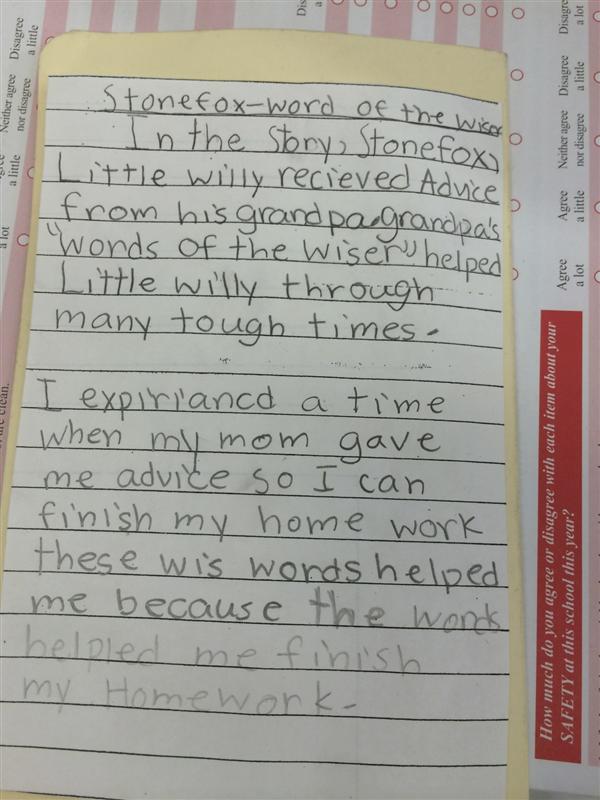 Stonefox-word of the wiser
In the Story, Stonefox,
Little willy recieved Advice
from his grandpa. grandpa's
"words of the wiser" helped
Little willy through
many tough times.
I expiriancd a time
when my mom gave
me advice so I can
finish my home work
these wis words helped
me because the words
helpled me finish
my Homework.
How much do you agree or disagree with each item about your
SAFETY at this school this year?
Agree
a lot
Agree
a little
Neither agree
nor disagree
Disagree
a little
Disagree
a lot
Disagree
a little
Neither agree
nor disagree
a little
a lot
are clean.